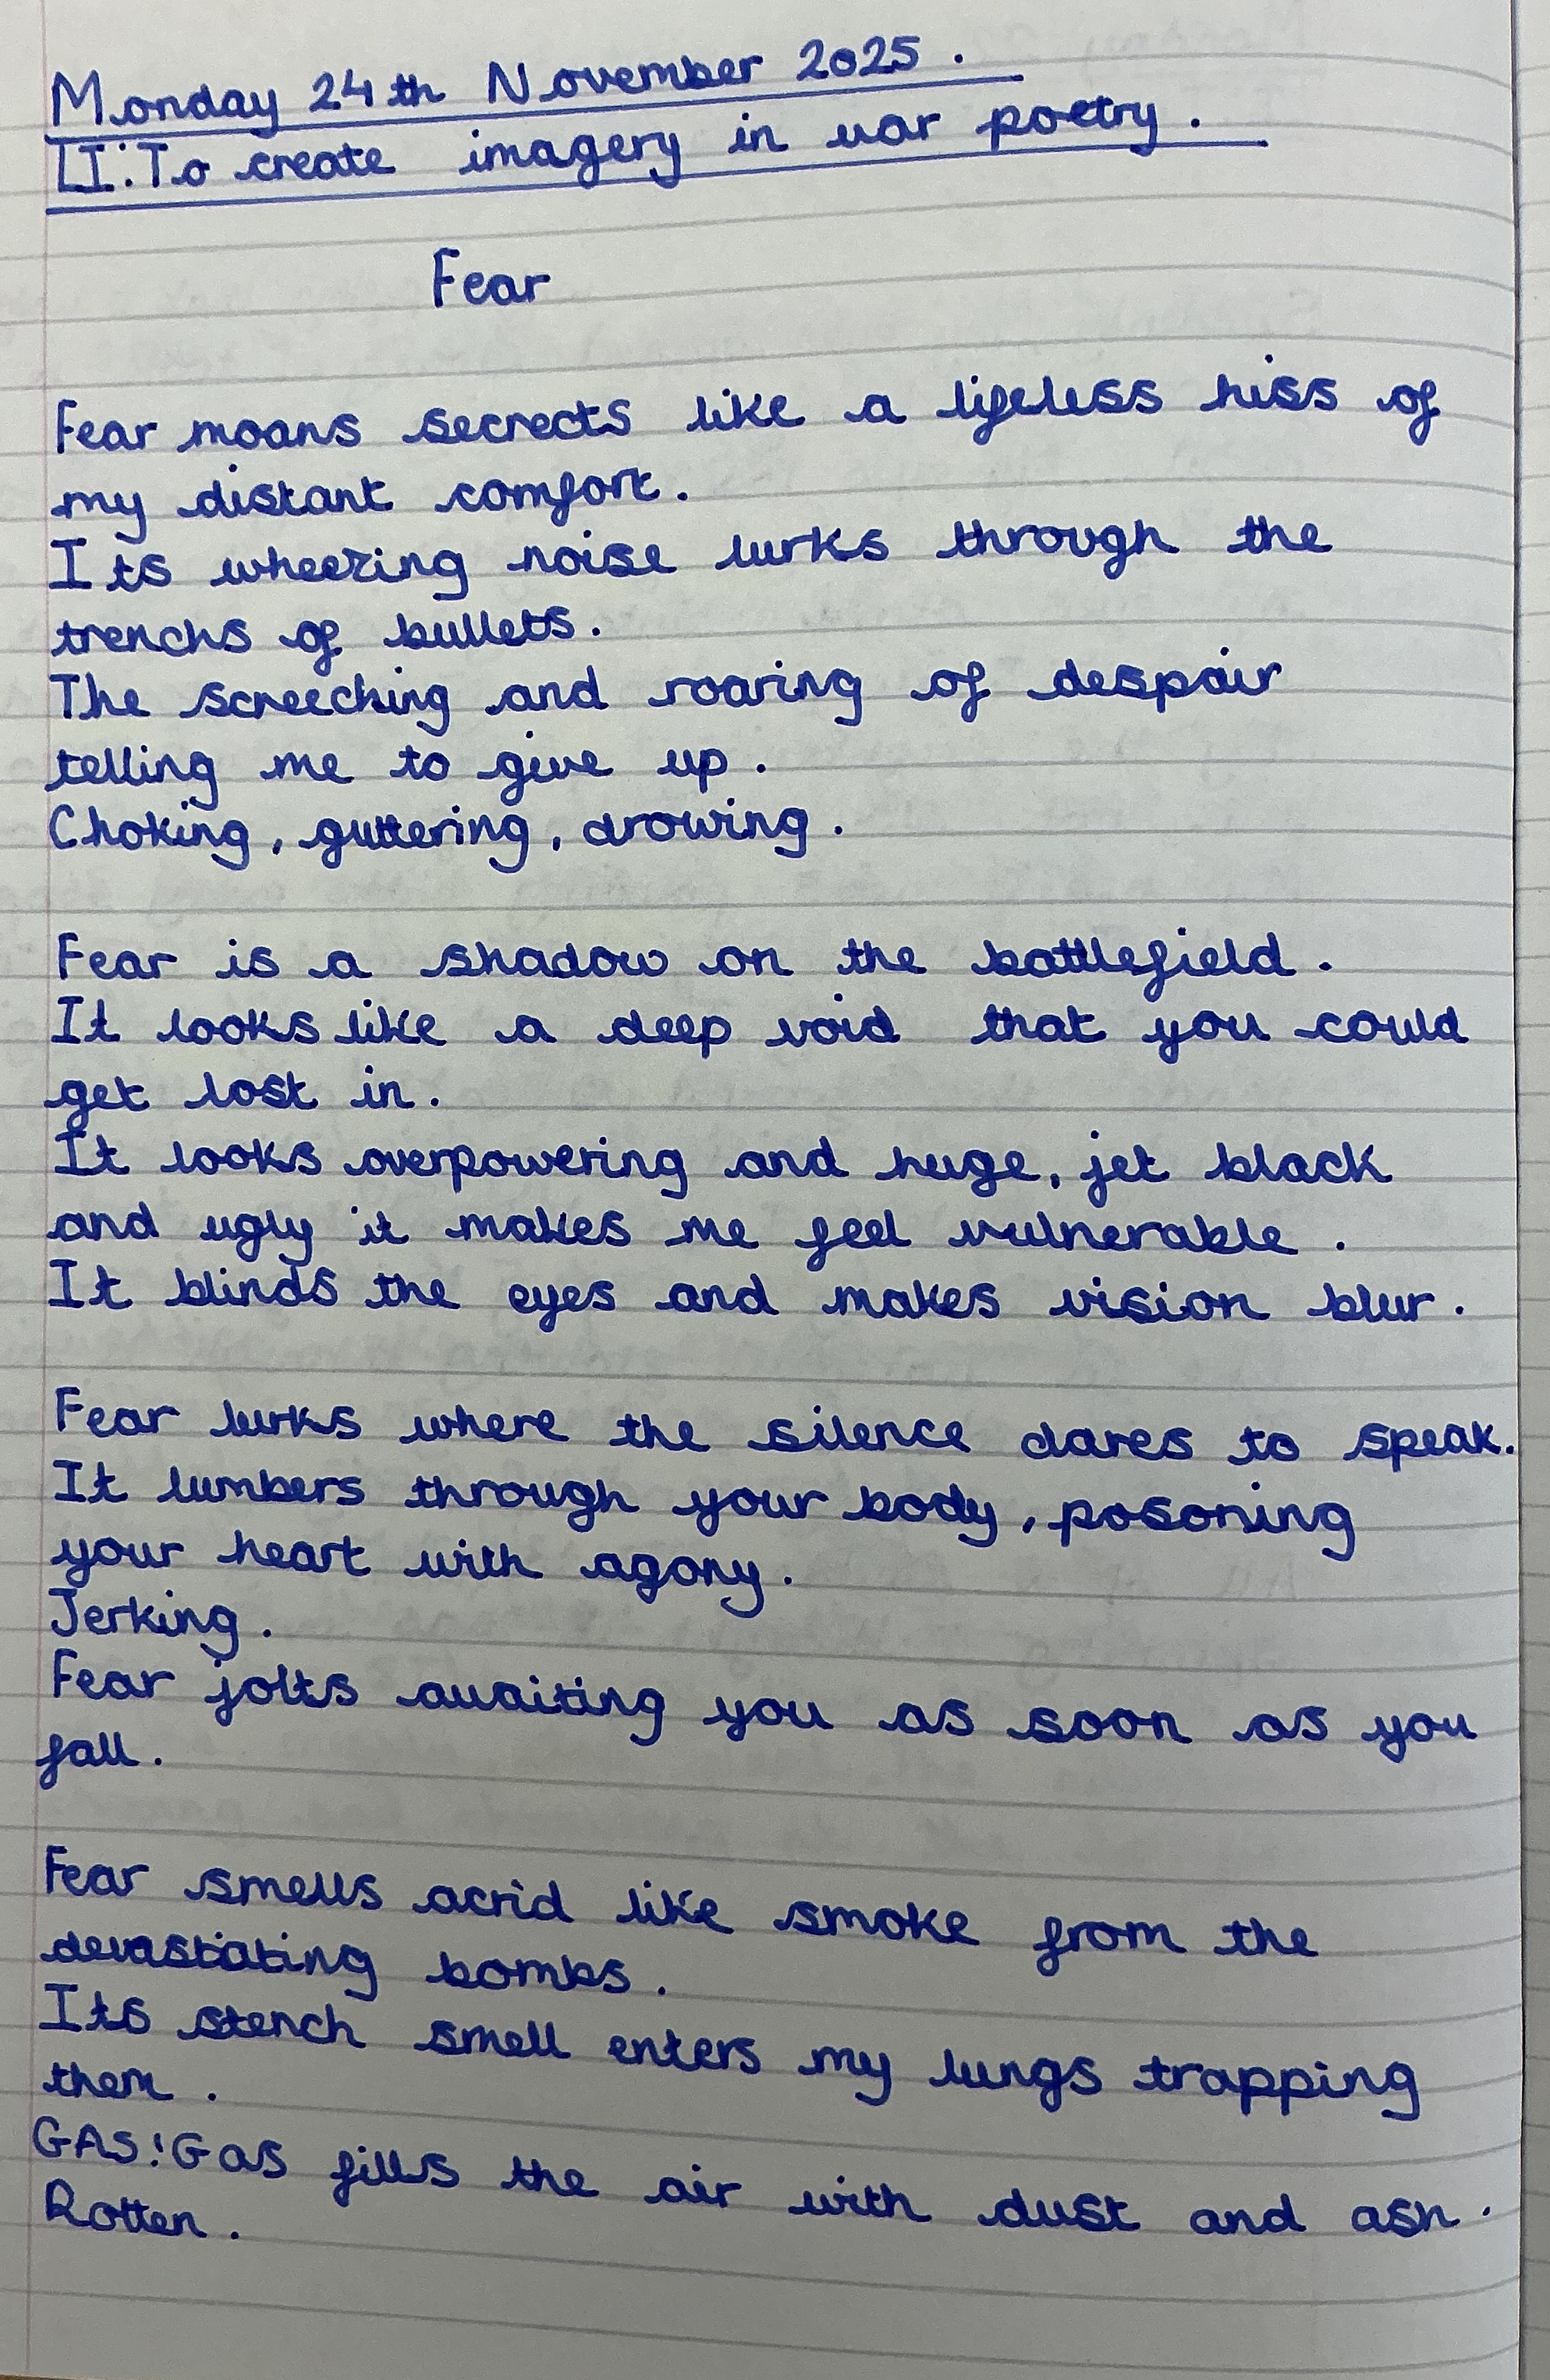 Monday 24th November 2025.
LI: To create imagery in war poetry.
Fear
Fear moans secrects like a lifeless hiss of
my distant comfort.
Its wheezing noise lurks through the
trenchs of bullets.
The screeching and roaring of despair
telling me to give up.
Choking, guttering, drowing.
Fear is a shadow on the battlefield.
It looks like a deep void that you could
get lost in.
It looks overpowering and huge, jet black
and ugly it makes me feel vulnerable.
It blinds the eyes and makes vision blur.
Fear lurks where the silence dares to speak.
It lumbers through your body, posoning
your heart with agony.
Jerking.
Fear jolts awaiting you as soon as you
fall.
Fear smells acrid like smoke from the
devastating bombs.
Its stench smell enters my lungs trapping
them.
GAS! Gas fills the air with dust and ash.
Rotten.